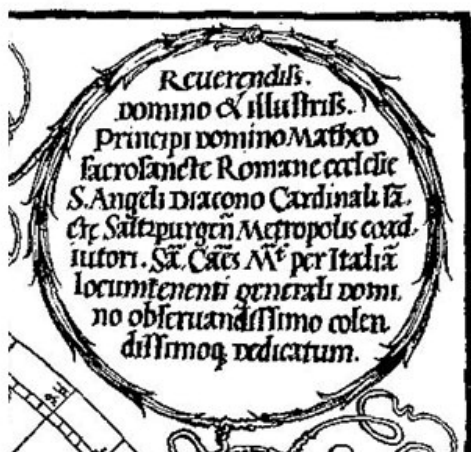 Reuerendiss.
Domino & illustriss.
Principi Domino Matheo
sacrosancte Romane ecclesie
S. Angeli Diacono Cardinali sã.
cte Saltzpurgeñ Metropolis coad
iutori. Sã. Cães Mᵗ per Italiã
locumtenenti generali domi,
no obseruandissimo colen
dissimoqꝫ dedicatum.